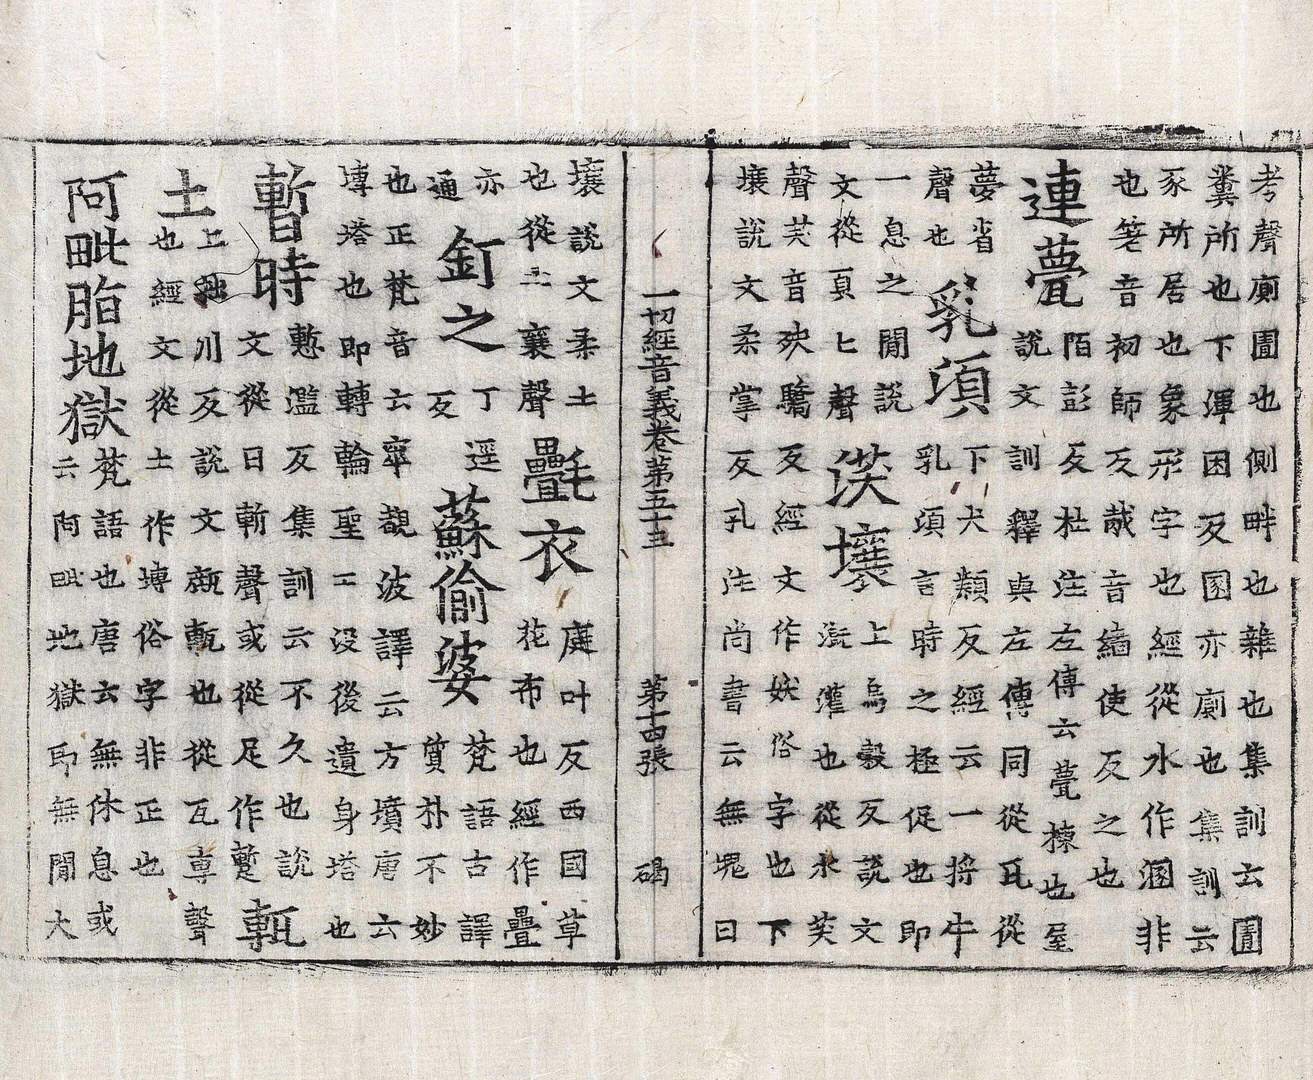 考聲廁圊也側畔也雜也集訓云圊
糞所也下渾困反圂亦廁也集訓云
豕所居也象形字也經從水作溷非
也箋音初師反哉音緇使反之也
連甍
陌彭反杜注左傳云甍棟也屋
說文訓釋與左傳同從瓦從
夢省
聲也
乳項
下犬類反經云一將牛
乳項言時之極促也即
一息之間說
文從頁匕聲
沃壤
上烏穀反說文
溉灌也從水芺
聲芺音殀驕反經文作妖俗字也下
壤說文柔掌反孔注尚書云無塊曰
一切經音義卷第五十三 第十四張 碣
壤說文柔土
也從土襄聲
氎衣
庭叶反西國草
花布也經作疊
亦
通
釘之
丁逕
反
蘇偷婆
梵語古譯
質朴不妙
也正梵音云窣覩波譯云方墳唐云
塼塔也即轉輪聖王沒後遺身塔也
暫時
慙濫反集訓云不久也說
文從日斬聲或從足作蹔
甎
土
上拙川反說文甎也從瓦專聲
也經文從土作塼俗字非正也
阿毗脂地獄
梵語也唐云無休息或
云阿毗地獄即無間大